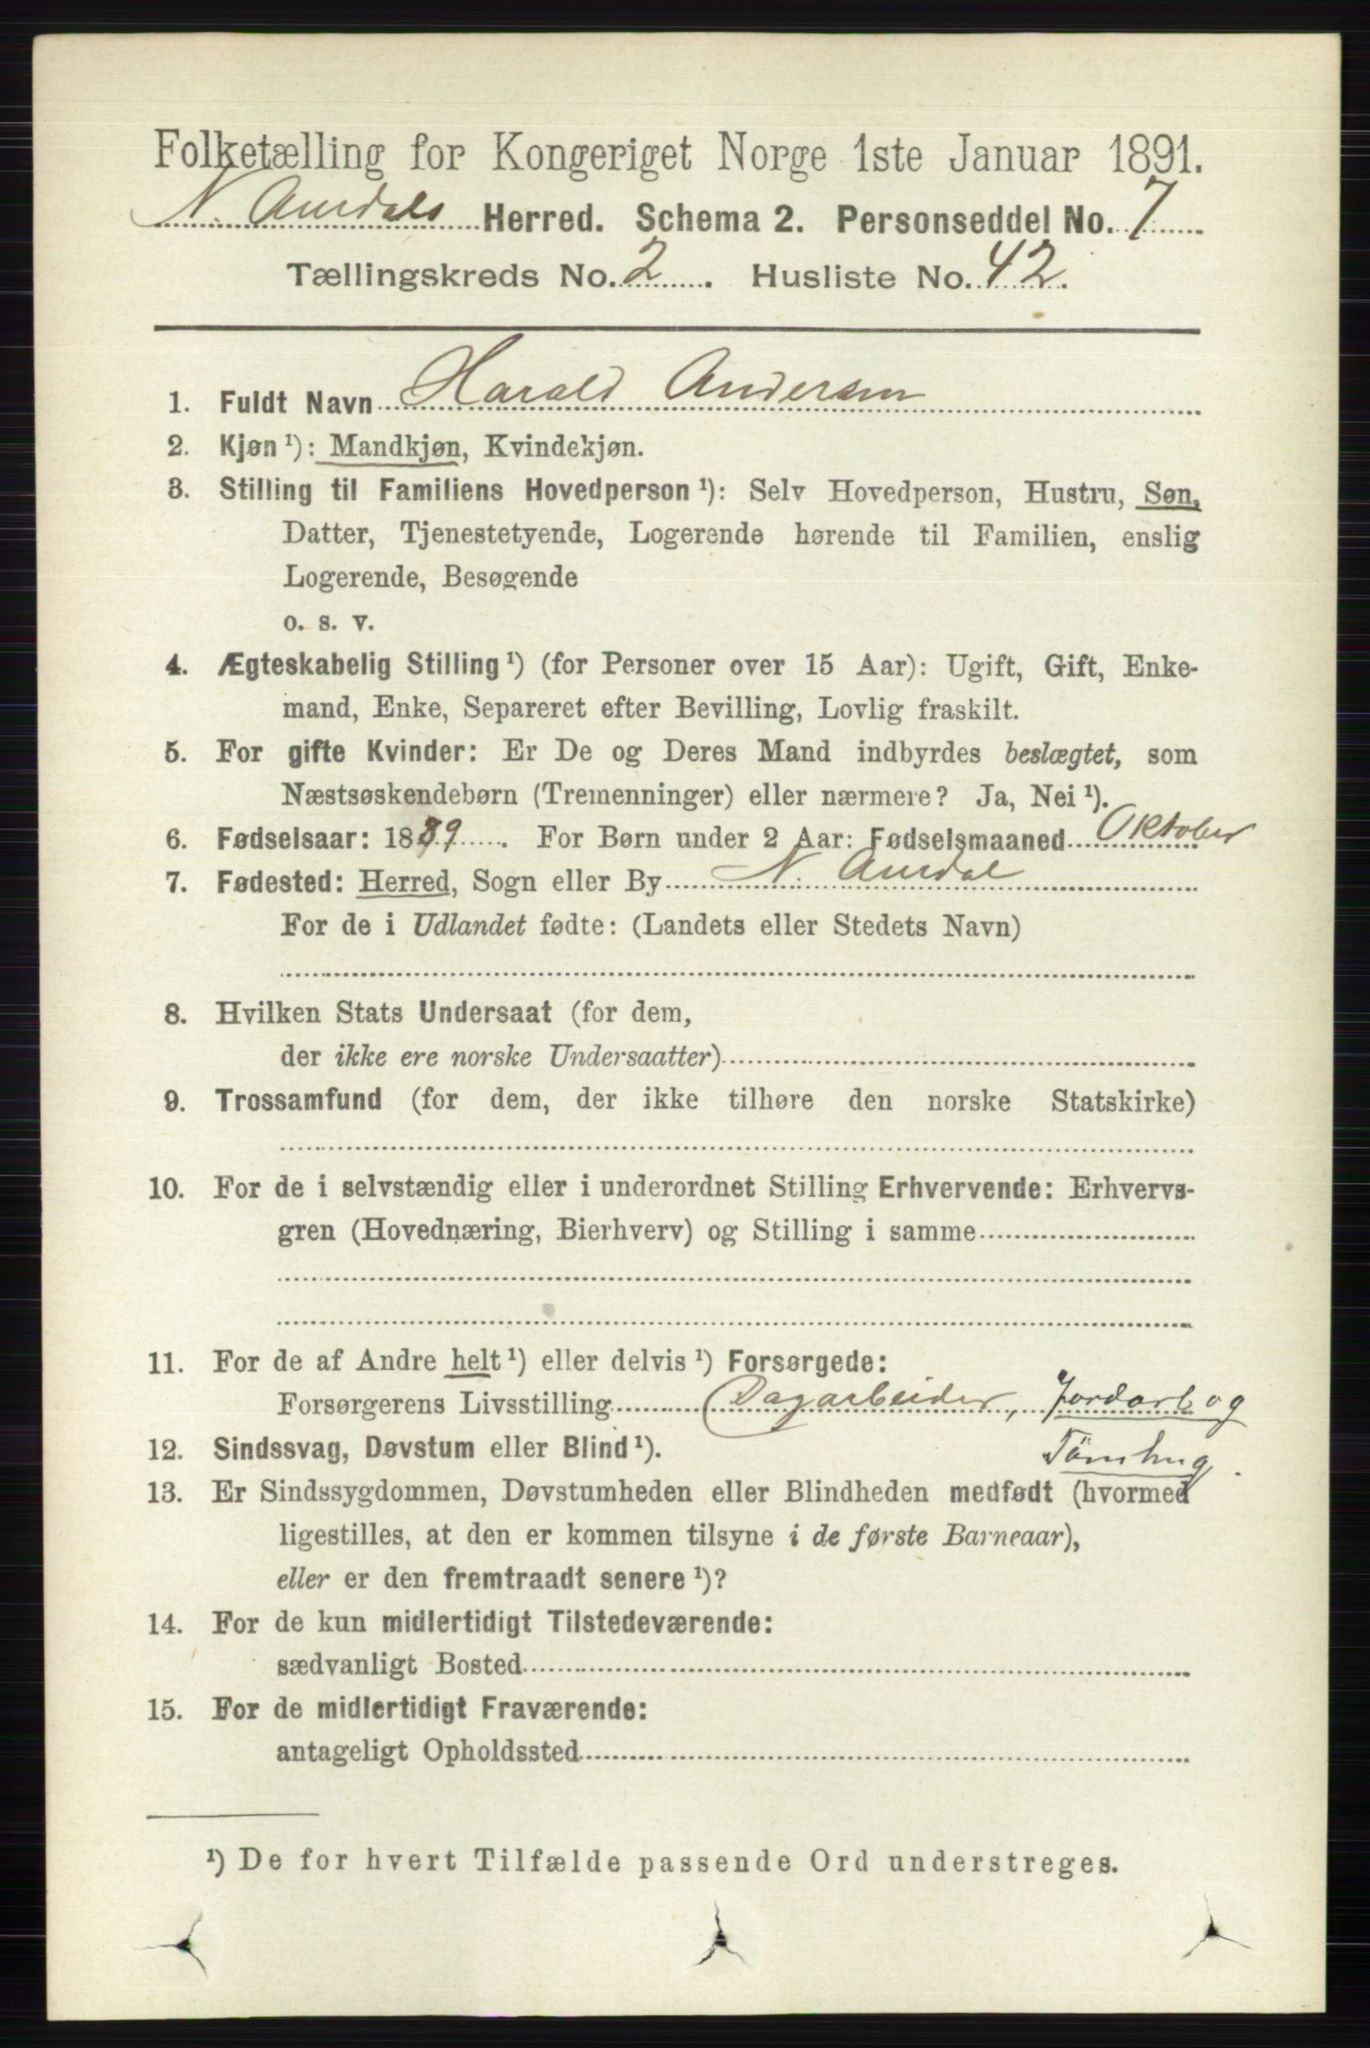 Folketælling for Kongeriget Norge 1ste Januar 1891.
N. Aurdals Herred. Schema 2. Personseddel No. 7
Tællingskreds No. 2. Husliste No. 42.
1. Fuldt Navn Harald Andersen
2. Kjøn ¹): Mandkjøn, Kvindekjøn.
3. Stilling til Familiens Hovedperson ¹): Selv Hovedperson, Hustru, Søn,
Datter, Tjenestetyende, Logerende hørende til Familien, enslig
Logerende, Besøgende
o. s. v.
4. Ægteskabelig Stilling ¹) (for Personer over 15 Aar): Ugift, Gift, Enke-
mand, Enke, Separeret efter Bevilling, Lovlig fraskilt.
5. For gifte Kvinder: Er De og Deres Mand indbyrdes beslægtet, som
Næstsøskendebørn (Tremenninger) eller nærmere? Ja, Nei ¹).
6. Fødselsaar: 1889. For Børn under 2 Aar: Fødselsmaaned Oktober
7. Fødested: Herred, Sogn eller By N. Aurdal
For de i Udlandet fødte: (Landets eller Stedets Navn)
8. Hvilken Stats Undersaat (for dem,
der ikke ere norske Undersaatter)
9. Trossamfund (for dem, der ikke tilhøre den norske Statskirke)
10. For de i selvstændig eller i underordnet Stilling Erhvervende: Erhvervs-
gren (Hovednæring, Bierhverv) og Stilling i samme
11. For de af Andre helt ¹) eller delvis ¹) Forsørgede:
Forsørgerens Livsstilling Dagarbeider, Jordarb og
Tömhug.
12. Sindssvag, Døvstum eller Blind ¹).
13. Er Sindssygdommen, Døvstumheden eller Blindheden medfødt (hvormed
ligestilles, at den er kommen tilsyne i de første Barneaar),
eller er den fremtraadt senere ¹)?
14. For de kun midlertidigt Tilstedeværende:
sædvanligt Bosted
15. For de midlertidigt Fraværende:
antageligt Opholdssted
¹) De for hvert Tilfælde passende Ord understreges.